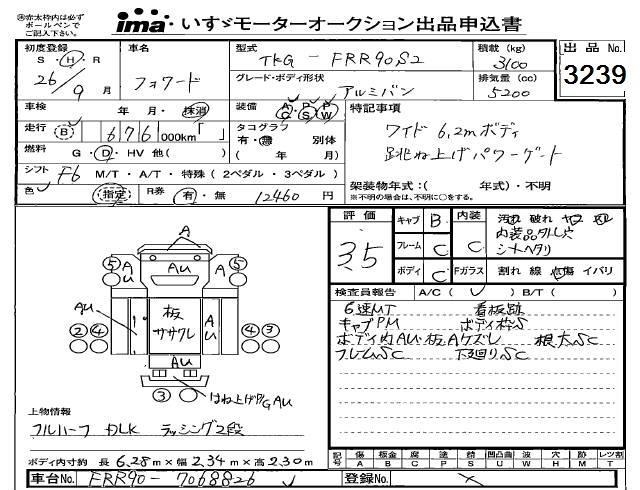 ※赤太枠内は必ず
ボールペンで
ご記入下さい。
ima いすゞモーターオークション出品申込書
初度登録 車名 型式 積載 (kg) 出品 No.
S ・ H ・ R TKG - FRR90S2 3100
26/9 月 フォワード グレード・ボディ形状 排気量 (cc) 3239
アルミバン 5200
車検 年 月・抹消 装備 特記事項
走行 (B) 676 000km「 」 タコグラフ ワイド 6.2mボディ
有・無 別体
燃料 G ・ D ・ HV 他( ) ( 年 月) 跳ね上げパワーゲート
シフト F6 M/T ・ A/T ・ 特殊 ( 2ペダル ・ 3ペダル ) 架装物年式:( 年式)・不明
色 (指定) R券 有・無 12460 円 ※不明の場合は、不明に○をする。
評価 キャブ B 内装 汚れ 破れ ヤニ
3.5 フレーム C C 内装品外し穴
シートヘタリ
ボディ C Fガラス 割れ 線 点傷 イバリ
A
⑤ A AU A ⑤
検査員報告 A/C ( ) B/T ( )
AU 板 AU
ササクレ
② ④ ④ ③
AU
③ はね上げP/G AU
6速MT 看板跡
キャブPM ボディ枠S
ボディ内AU・板Aケズレ 根太SC
フレームSC 下廻りSC
上物情報
フルハーフ DLK ラッシング2段
ボディ内寸約 長 6.28 m × 幅 2.34 m × 高 2.30 m
記号 傷 板金 腐 塗 錆 凹凸曲 波 穴 目 レツ割
A B C P S U W H M T
車台No. FRR90 - 7068826 登録No.